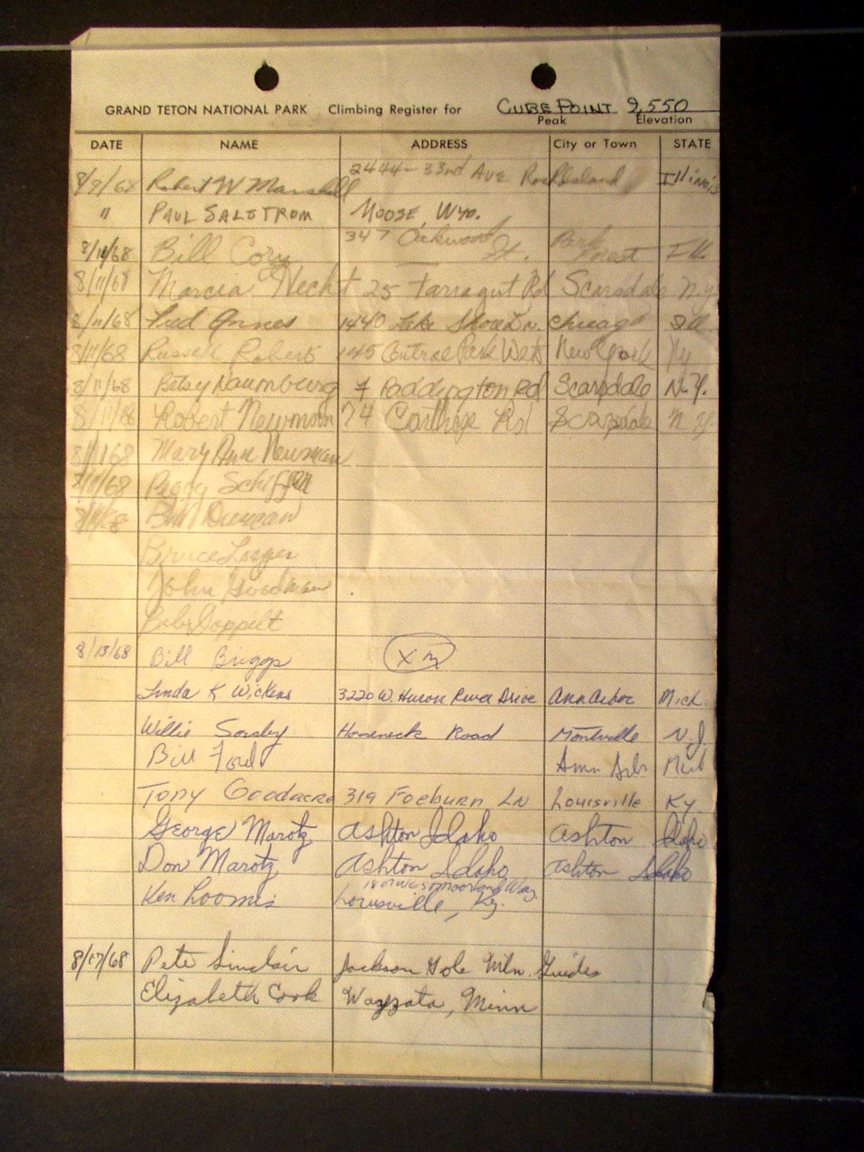 GRAND TETON NATIONAL PARK Climbing Register for CUBE POINT 9,550
Peak Elevation
DATE NAME ADDRESS City or Town STATE
8/9/68 Robert W Marshall 2444-33rd Ave Rock Island Illinois
" PAUL SALSTROM MOOSE, WYO.
8/10/68 Bill Cory 347 Oakwood St. Park Forest Ill.
8/11/68 Marcia Hecht 25 Farragut Rd Scarsdale N.Y.
8/11/68 1440 Lake Shore Dr. Chicago Ill
8/11/68 Russell Robert Central Park West New York Ny
8/11/68 Betsy Naumburg 7 Paddington Rd Scarsdale N.Y.
8/11/68 Robert Newman 74 Carthage Rd Scarsdale N.Y.
8/11/68 Mary Ann Newman
8/11/68 Peggy
8/11/68 Duncan
Bruce
John Goodman
Bob Doppelt
8/13/68 Bill Briggs
Linda K Wickens 3220 W. Huron River Drive Ann Arbor Mich.
Willie Horseneck Road Montville N.J.
Bill Ford Ann Arb Mich
Tony Goodacre 319 Foeburn Ln Louisville Ky
George Marotz Ashton Idaho Ashton Idaho
Don Marotz Ashton Idaho Ashton Idaho
Ken Loomis Way Louisville, Ky.
8/17/68 Pete Sinclair Jackson Hole Mtn. Guides
Elizabeth Cook Wayzata, Minn